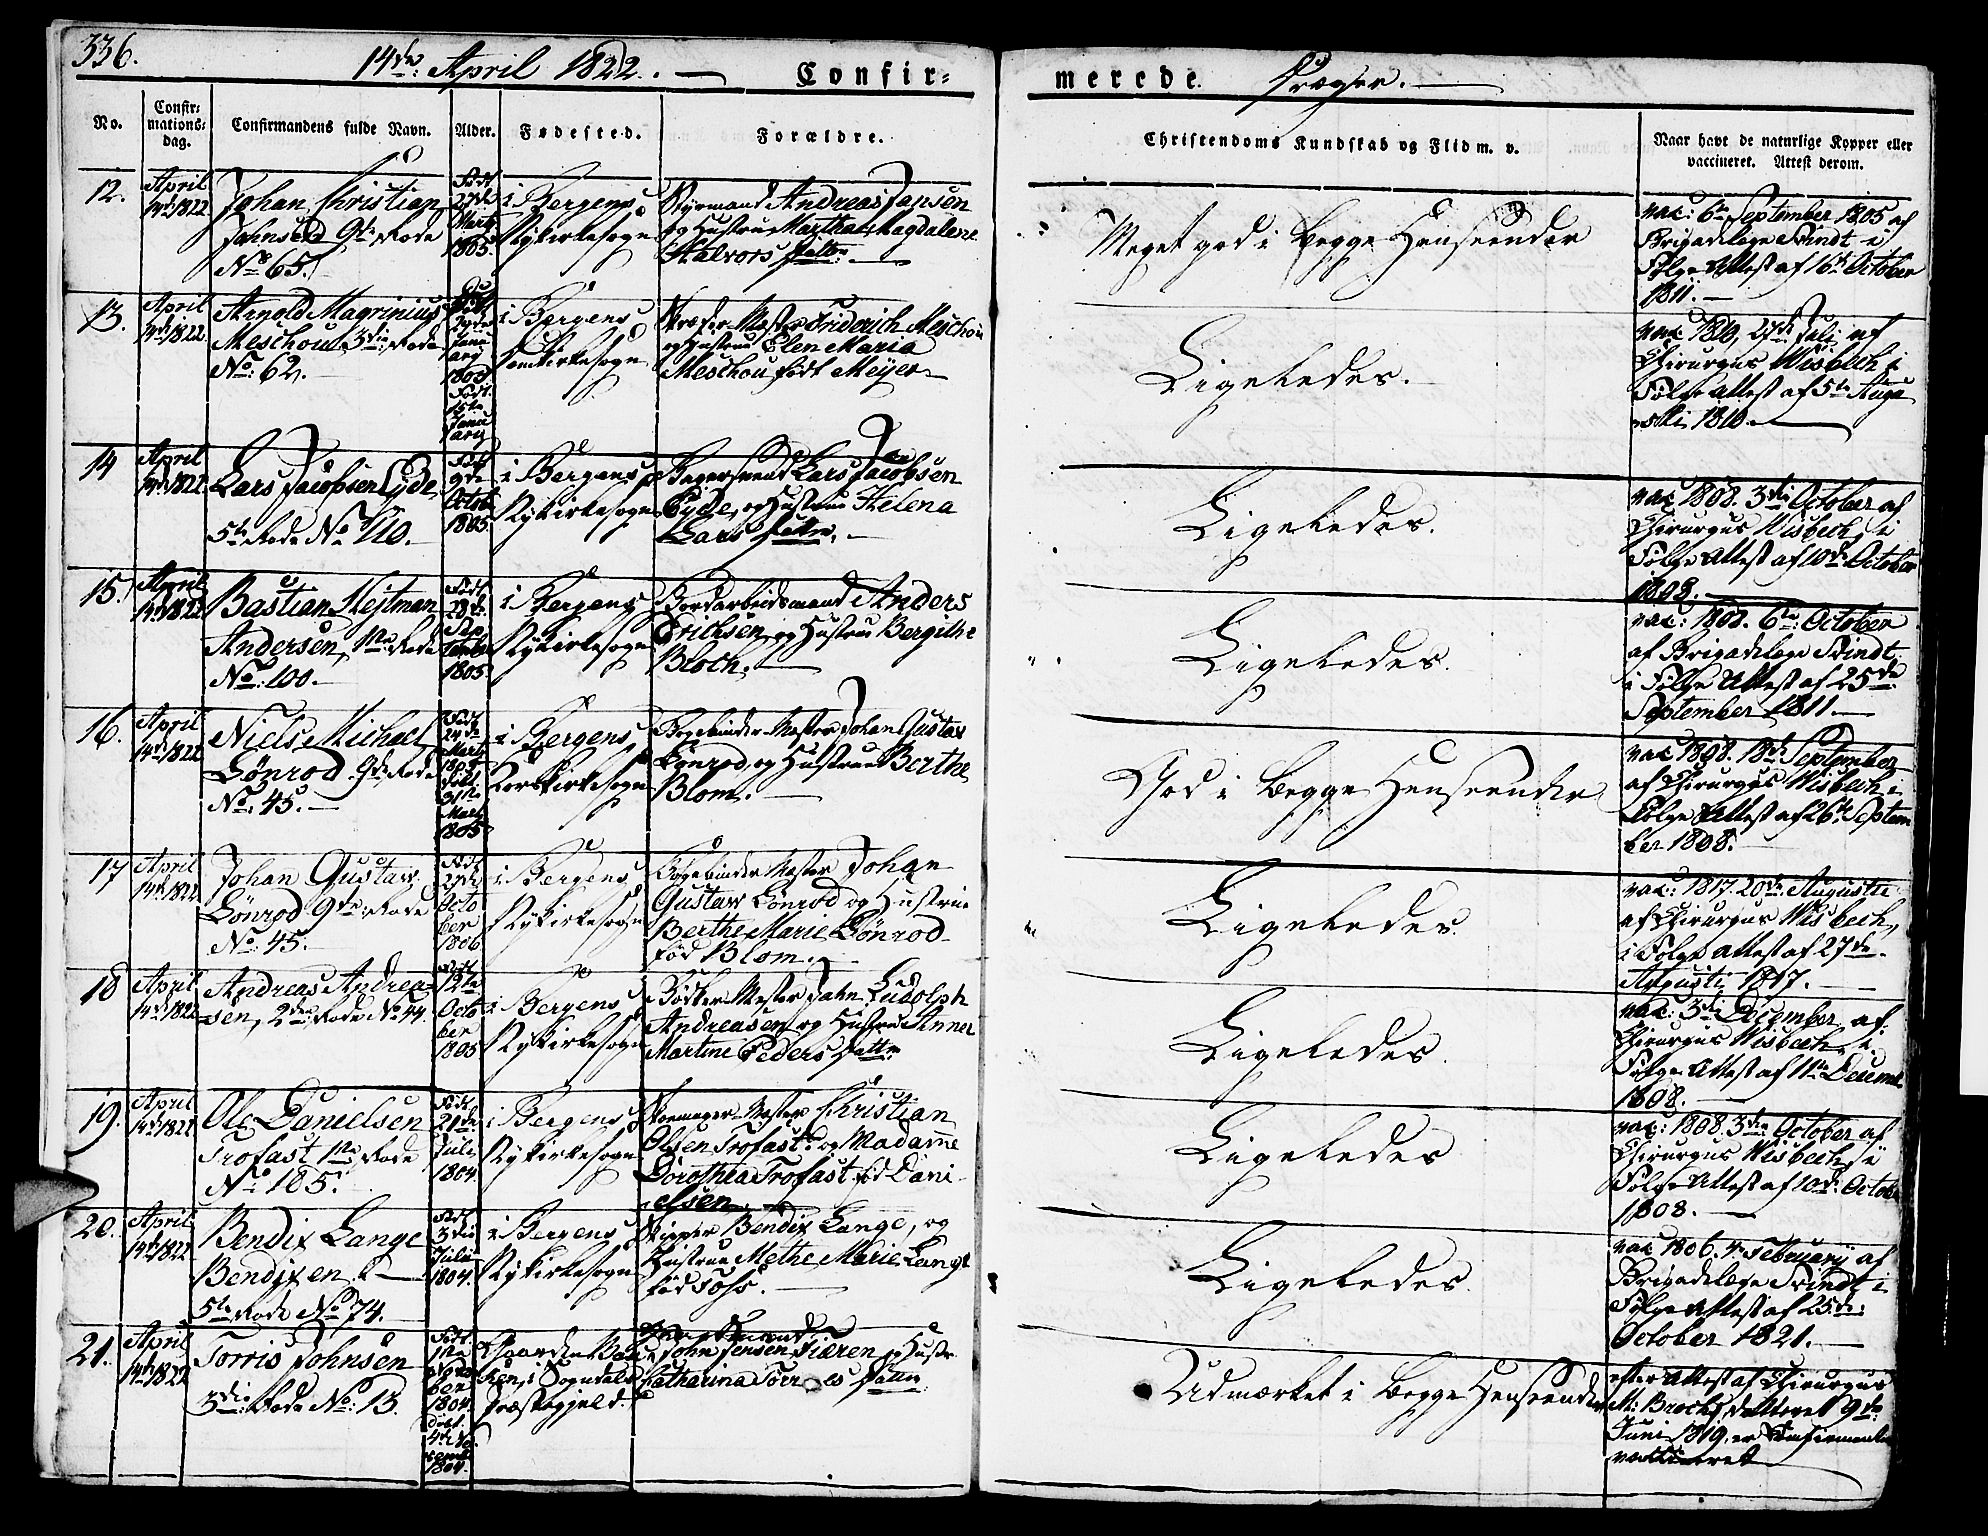 336.
14de April 1822.
Confir=
merede.
No.
Confir=
mations=
dag.
Confirmandens fulde Navn.
Alder.
Fødested.
Forældre.
Christendoms Kundskab og Flid m. v.
Naar havt de naturlige Kopper eller
vaccineret. Attest derom.
12.
April
14de 1822
Johan Christian
Jahnsen 9de Rode
No 65.
Født
27de
Marti
1805.
i Bergens
Nykirkesogn
Styrmand Andreas Jansen
og Hustrue Martha Magdalene
Halvors Datter.
Meget god i begge Henseender
vac: 6te September 1805 af
Brigadelæge Svindt i
Følge Attest af 16de October
1811.
13.
April
14de 1822
Arnold Magrinius
Meschou 3die Rode
No: 62.
i Bergens
Domkirkesogn
Skræder Mester Friderich Meschou
og Hustrue Elen Maria
Meschou født Meyer
Ligeledes.
vac 1810, 27de Juli af
Chirurgus Wisbech i
Følge Attest af 5te Augu
sti 1810.
14
April
14de 1822
Lars Jacobsen Eyde
5te Rode No 110.
Født
9de
Octob
1805
i Bergens
Nykirkesogn
Lars Jacobsen
Eyde, og Hustrue Helena
Lars Datter.
Ligeledes.
vac 1808. 3die October af
Chirurgus Wisbech, i
Følge Attest af 10de October
1808.
15.
April
14de 1822
Bastian Hejtman
Andersen, 1ste Rode
No: 100.
Født
28de
Sep
tember
1805
i Bergens
Nykirkesogn
Bordarbeidsmand Anders
Erichsen og Hustrue Bergithe
Bloch.
Ligeledes.
vac: 1808. 6te October
af Brigadelæge Svindt
i Følge Attest af 25de
September 1811.
16.
April
14de 1822
Niels Michael
Lönrod 9de Rode
No: 45.
i Bergens
Korskirkesogn
Bogebinder Mester Johan Gustav
Lönrod, og Hustrue Berthe
Blom.
God i begge Henseender
vac 1808. 18de September
af Chirurgus Wisbech i
Følge Attest af 26de Septem
ber 1808.
17
April
14de 1822
Johan Gustav
Lönrod 9de Rode
No: 45.
Født
27de
Octo
ber
1806
i Bergens
Nykirkesogn
Bogebinder Mester Johan
Gustav Lönrod og Hustrue
Berthe Marie Lönrod
fød Blom.
Ligeledes
vac: 1817. 20de Augusti
af Chirurgus Wisbech,
i Følge Attest af 27de
Augusti 1817.
18
April
14de 1822
Andreas Andrea=
sen, 2den Rode No 44.
Født
12te
Octo
ber
1805
i Bergens
Nykirkesogn
Bödker Mester Jahn Ludolph
Andreasen og Hustrue Anne
Martine Peders Datter
Ligeledes
vac: 3die December af
Chirurgus Wisbech, i
Følge Attest af 11te Decemb
1808.
19.
April
14de 1822
Ole Danielsen
Trofast 1ste Rode
No 185.
Født
21de
Juli
1804
i Bergens
Nykirkesogn
Skomager Mester Christian
Olsen Trofast og Madame
Dorothea Trofast fød Dani
elsen
Ligeledes
vac: 1808. 3die October af
Chirurgus Wisbech, i
Følge Attest af 10de Octob
1808.
20.
April
14de 1822
Bendix Lange
Bendixen
5te Rode No 74.
Født
3die
Julii
1804.
i Bergens
Nykirkesogn
Skipper Bendix Lange, og
Hustrue Methe Marie Lange
fød Foss.
Ligeledes
vac 1806. 4. Februarij af
Brigadelæge Svindt i
Følge Attest af 25de
October 1821.
21.
April
14de 1822
Torris Johnsen
3die Rode No: 13.
i Sogndals
Præstegjeld.
John Jensen Fiæren og Hustr
Catharina Torr es Datter
Udmærket i begge Henseender
efter Attest af Chirurgus
M: Broch, dateret 9de
Juni 1819, er Confirmanden
vaccineret